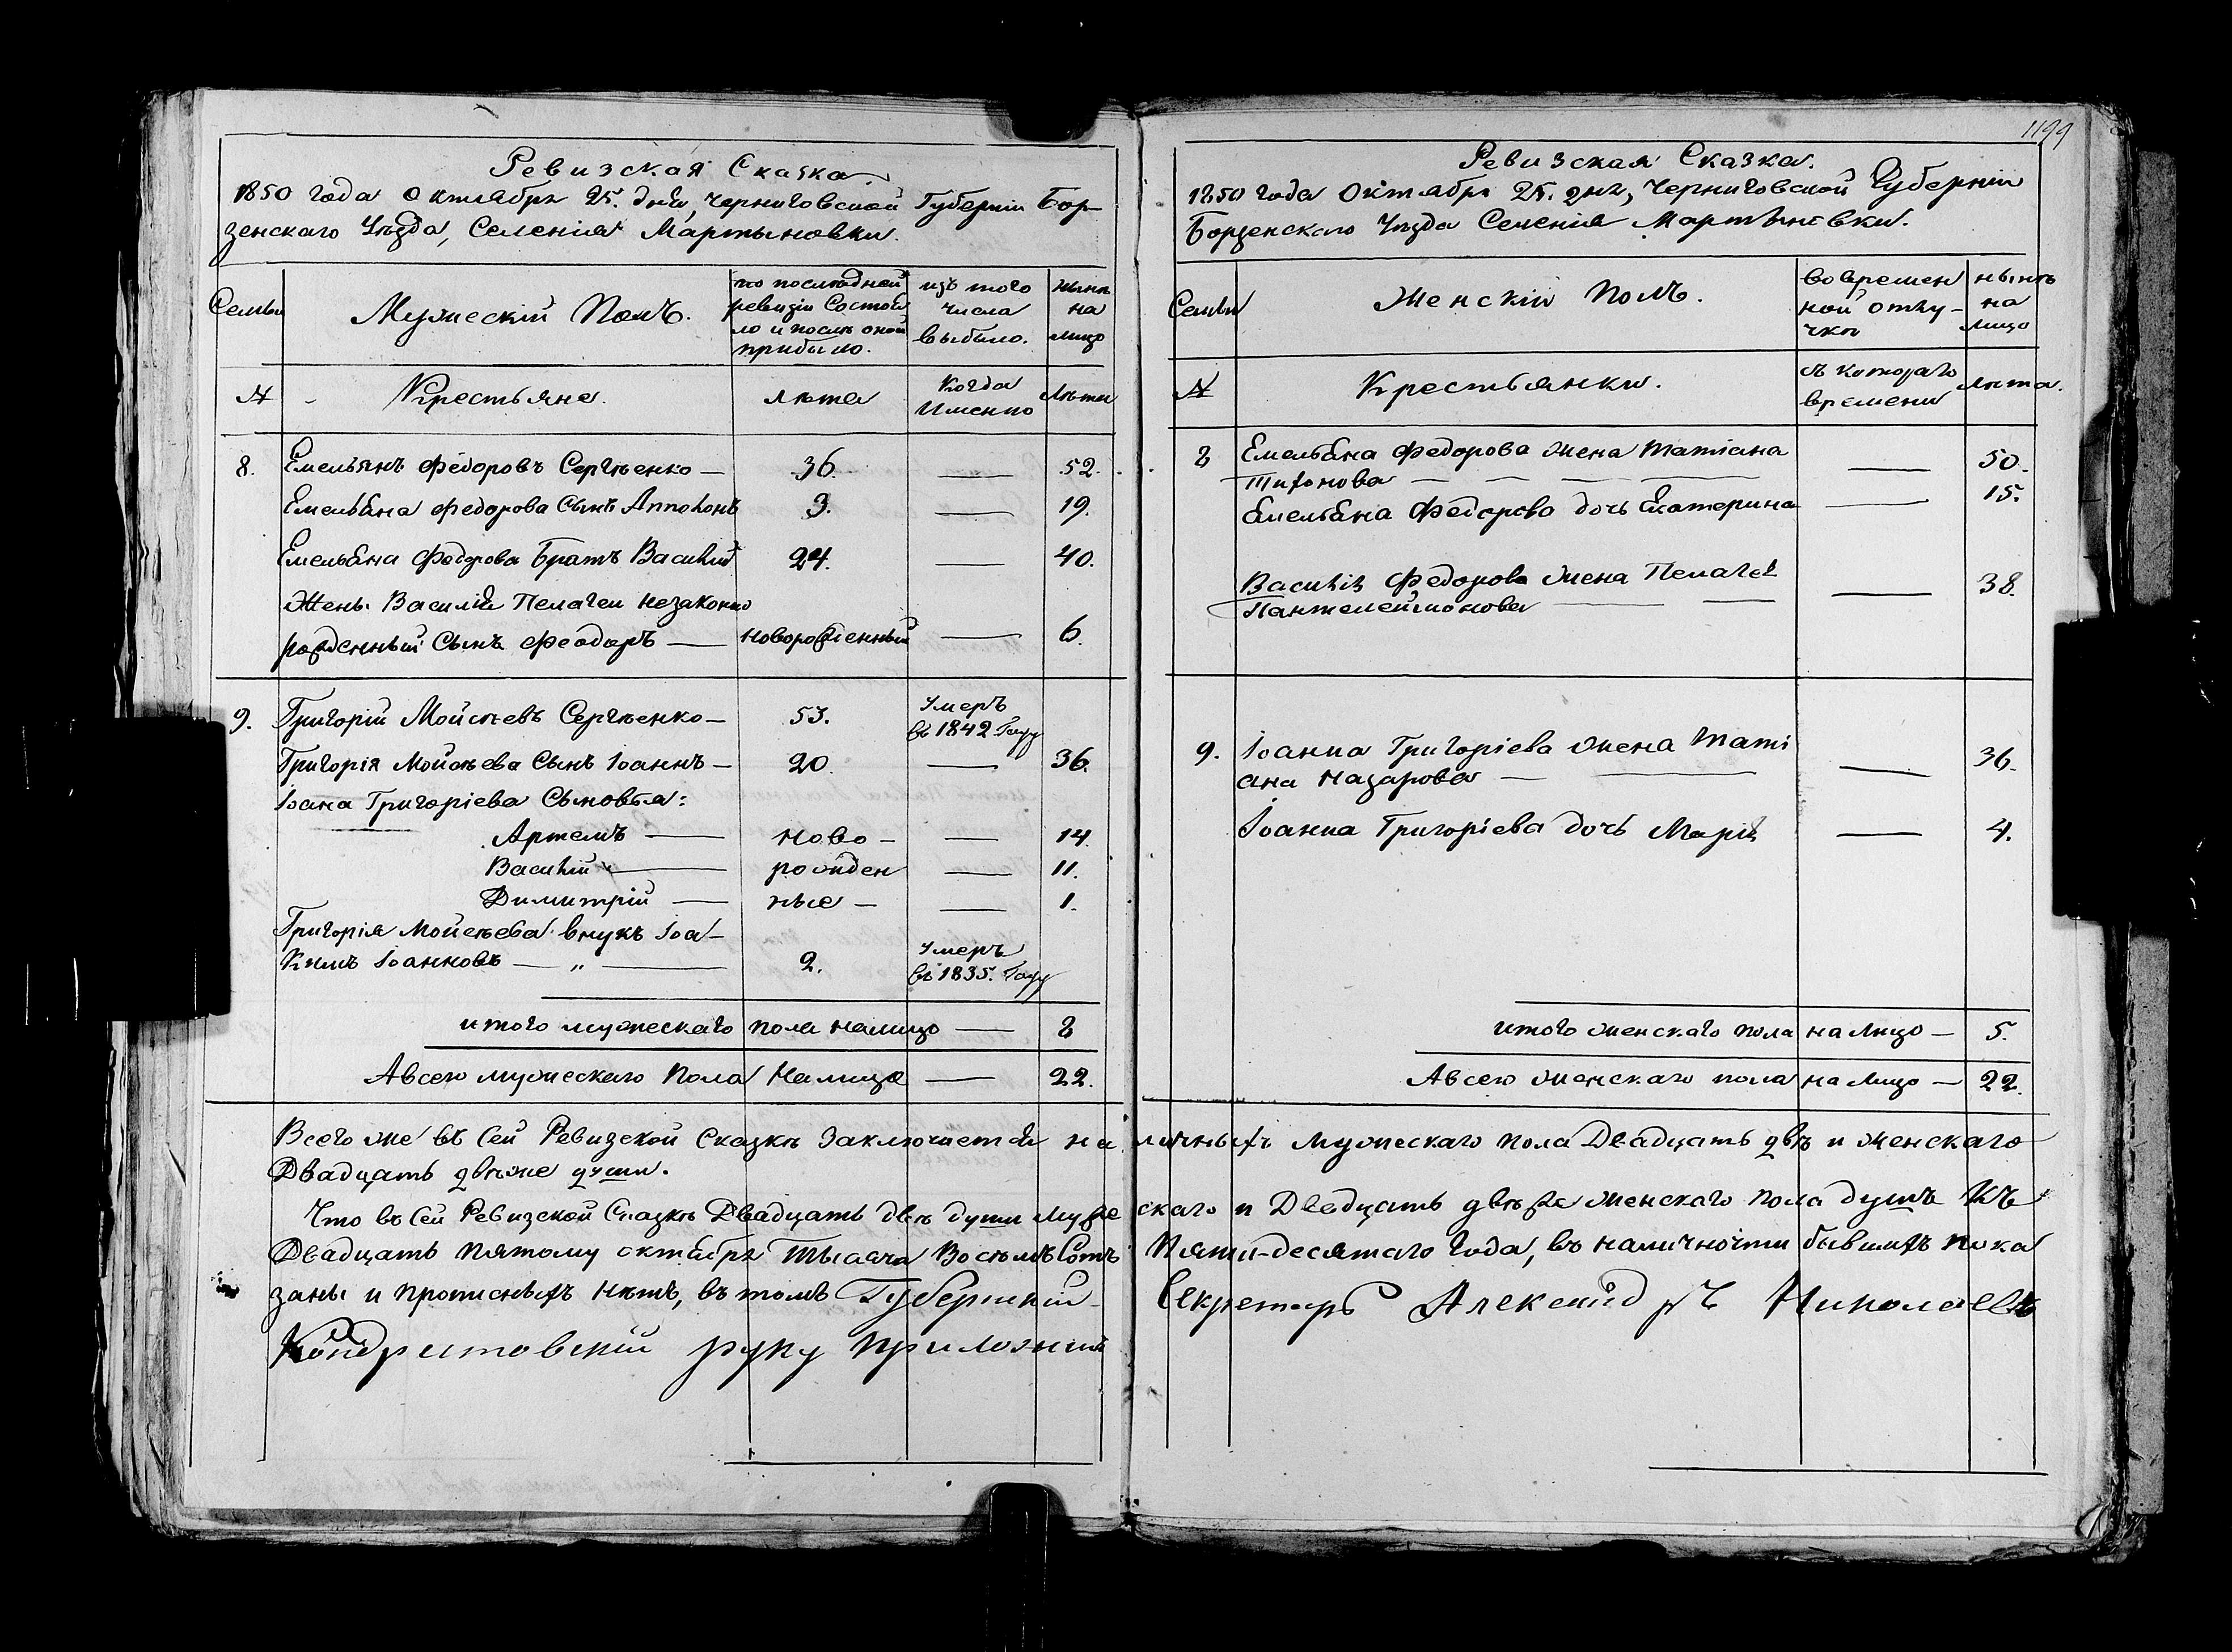 1199
Ревизская Сказка.
1850 года Октября 25. дня, Черниговской Губернiи Бор-
зенскаго Уѣзда, Селенiя Мартыновки.
Семьи
Мужескiй Полъ.
по последней
ревизiи Состоя
ло и послѣ оной
прибыло.
изъ того
числа
выбыло.
нынѣ
на
лицо
№
Крестьяне.
лѣта
Когда
Именно
Лѣта
8. Емельянъ Федоровъ Сергѣенко — 36. — 52.
Емельяна Федорова Сынъ Апполонъ 3. — 19.
Емельяна Федорова Братъ Василiй 24. — 40.
Жены Василiя Пелагеи незаконно
рожденный Сынъ Феодоръ — новорожденный — 6.
9. Григорiй Мойсѣевъ Сергѣенко — 53. Умеръ
въ 1842 Году
Григорiя Мойсѣева Сынъ Iоаннъ — 20. — 36.
Iоана Григорiева Сыновья:
Артемъ — ново — — 14.
Василiй — рожден — 11.
Димитрiй — ные — — 1.
Григорiя Мойсѣева внукъ Iоа-
кимъ Iоанновъ — „ — 2. Умеръ
въ 1835. Году
итого мужескаго пола налицо — 8
А всего мужескаго пола налицо — 22.
Ревизская Сказка.
1850 года Октября 25. дня, Черниговской Губернiи
Борзенскаго Уѣзда Селенiя Мартыновки.
Семьи
Женскiй Полъ.
во времен
ной отлу-
чкѣ
нынѣ
на
лицо
№
Крестьянки.
съ котораго
времени
лѣта.
8 Емельяна Федорова жена Татiана
Тихонова — — — — — 50.
Емельяна Федорова дочь Екатерина — 15.
Василiя Федорова жена Пелагея
Пантелеймонова — — — 38.
9. Iоанна Григорiева жена Татi
ана Назарова — — — 36.
Iоанна Григорiева дочь Марiя — 4.
итого женскаго пола на лицо — 5.
А всего женскаго пола на лицо — 22.
Всего же въ Сей Ревизской Сказкѣ Заключается на личныхъ мужескаго пола Двадцать двѣ и женскаго
Двадцать двѣ же души.
Что въ Сей Ревизской Сказкѣ Двадцать двѣ души муже скаго и Двадцать двѣ же женскаго пола душъ Къ
Двадцать пятому октября Тысяча Восемьсотъ Пяти-десятаго года, въ наличности бывшихъ пока
заны и прописныхъ нѣтъ, въ томъ Губернскiй Секретарь Александръ Николаевъ
Кондритовскiй руку приложилъ